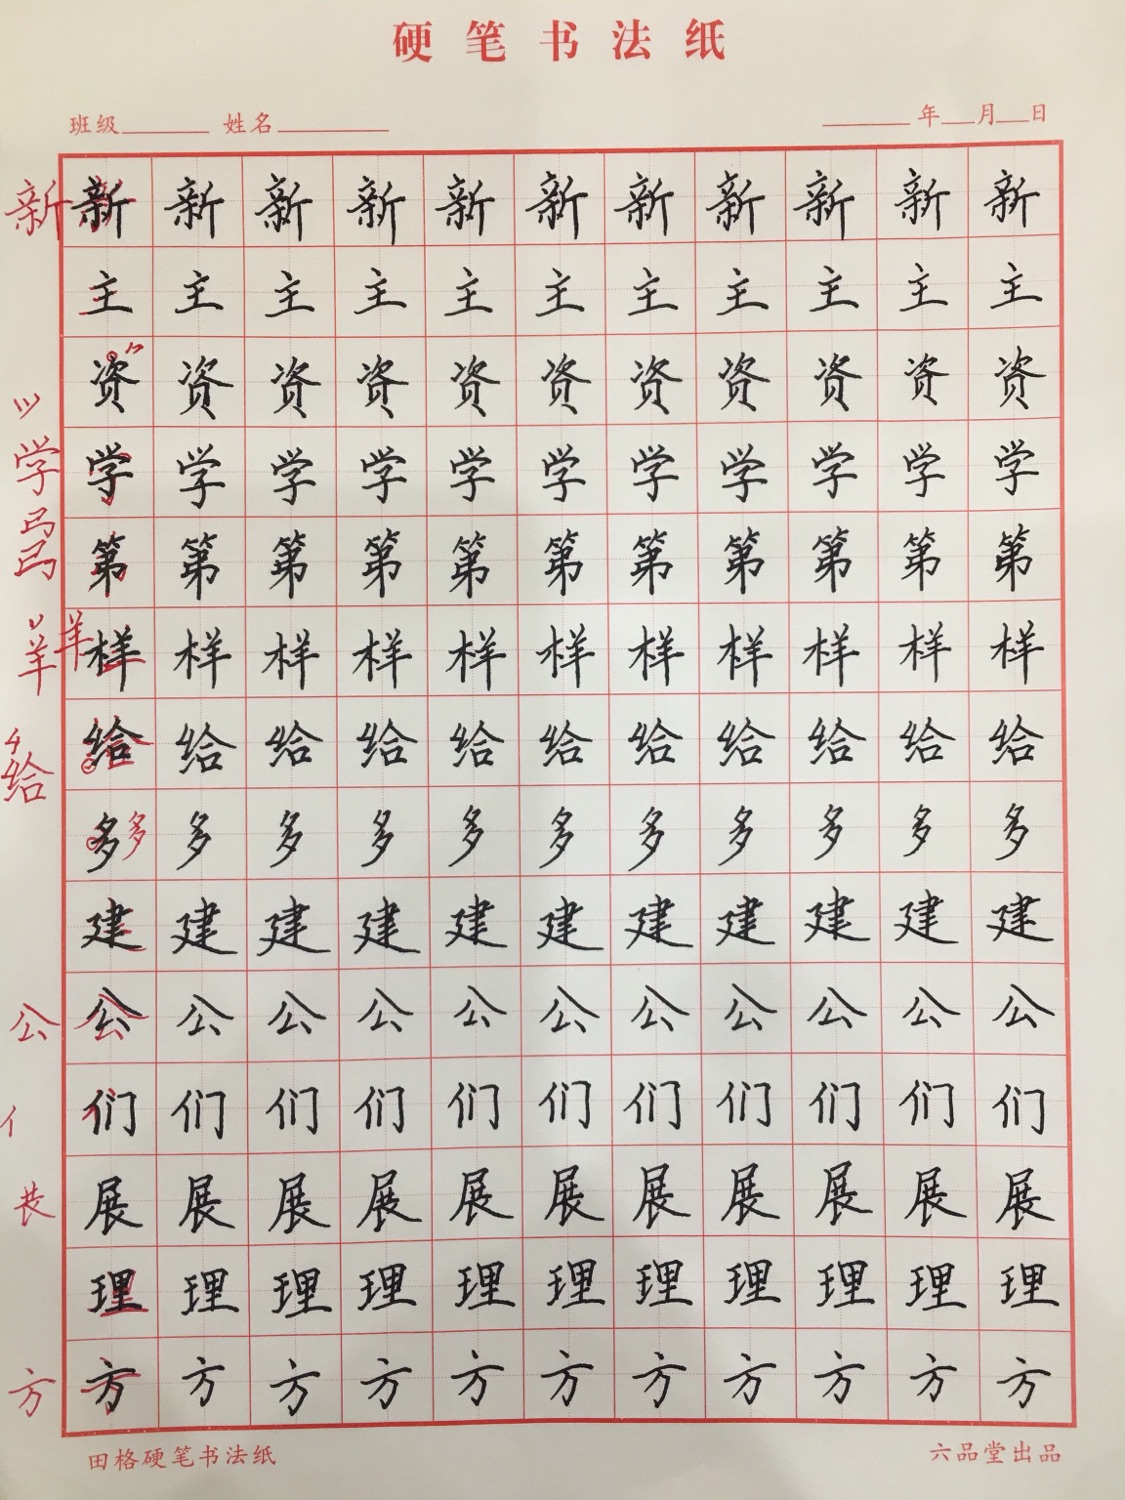 硬笔书法纸
班级 姓名 年 月 日
新 新 新 新 新 新 新 新 新 新 新 新
主 主 主 主 主 主 主 主 主 主 主
资 资 资 资 资 资 资 资 资 资 资
学 学 学 学 学 学 学 学 学 学 学 学
第 第 第 第 第 第 第 第 第 第 第
羊 羊 样 样 样 样 样 样 样 样 样 样 样
给 给 给 给 给 给 给 给 给 给 给 给
多 多 多 多 多 多 多 多 多 多 多 多
建 建 建 建 建 建 建 建 建 建 建
公 公 公 公 公 公 公 公 公 公 公 公
亻 们 们 们 们 们 们 们 们 们 们 们
展 展 展 展 展 展 展 展 展 展 展
理 理 理 理 理 理 理 理 理 理 理
方 方 方 方 方 方 方 方 方 方 方 方
田格硬笔书法纸 六品堂出品